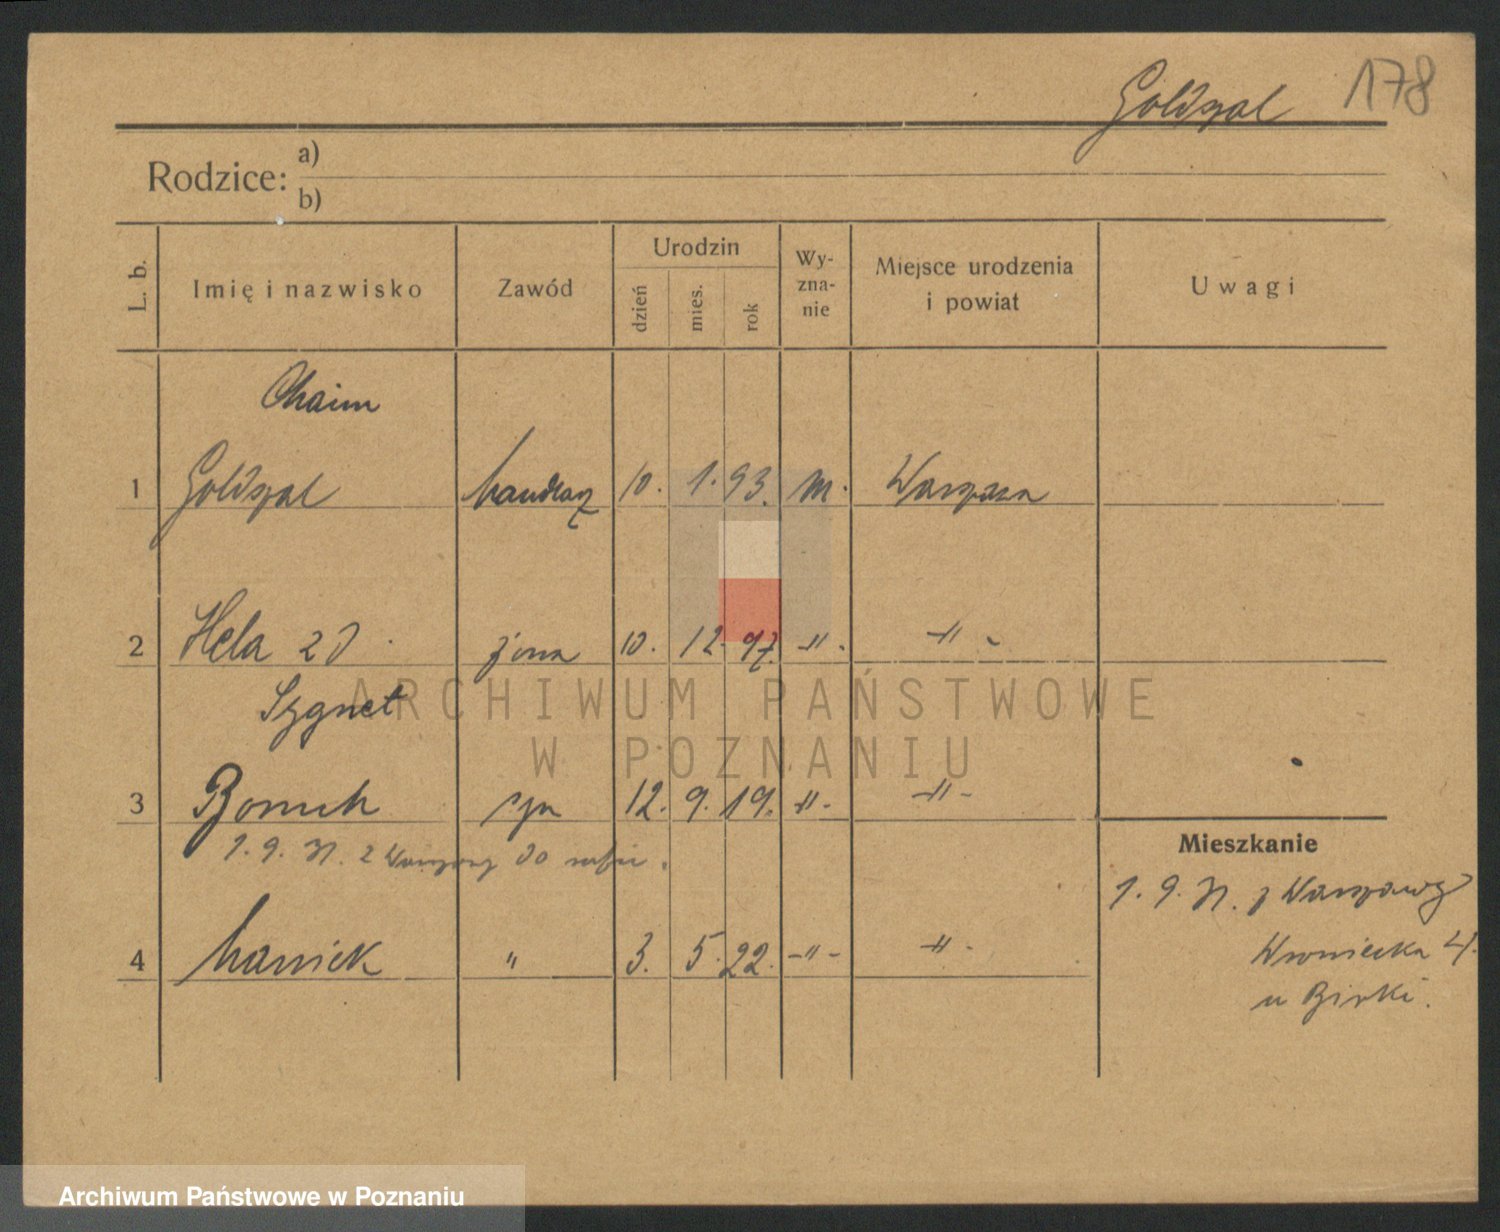 Goldszal 178
Rodzice: a)
b)
L. b. Imię i nazwisko Zawód Urodzin dzień mies. rok Wy-zna-nie Miejsce urodzenia i powiat Uwagi
Chaim
1 Goldszal handlarz 10. 1. 93. m. Warszawa
2 Hela zd. żona 10. 12. 97. -"-. -"-
Szygnet
3 Boruch syn 12. 9. 19. -"- -"-
1. 9. z Warszawy do
4 " 3. 5. 22. -"- -"-
Mieszkanie
1. 9. z Warszawy
Wroniecka 4.
u
ARCHIWUM PAŃSTWOWE
W POZNANIU
Archiwum Państwowe w Poznaniu